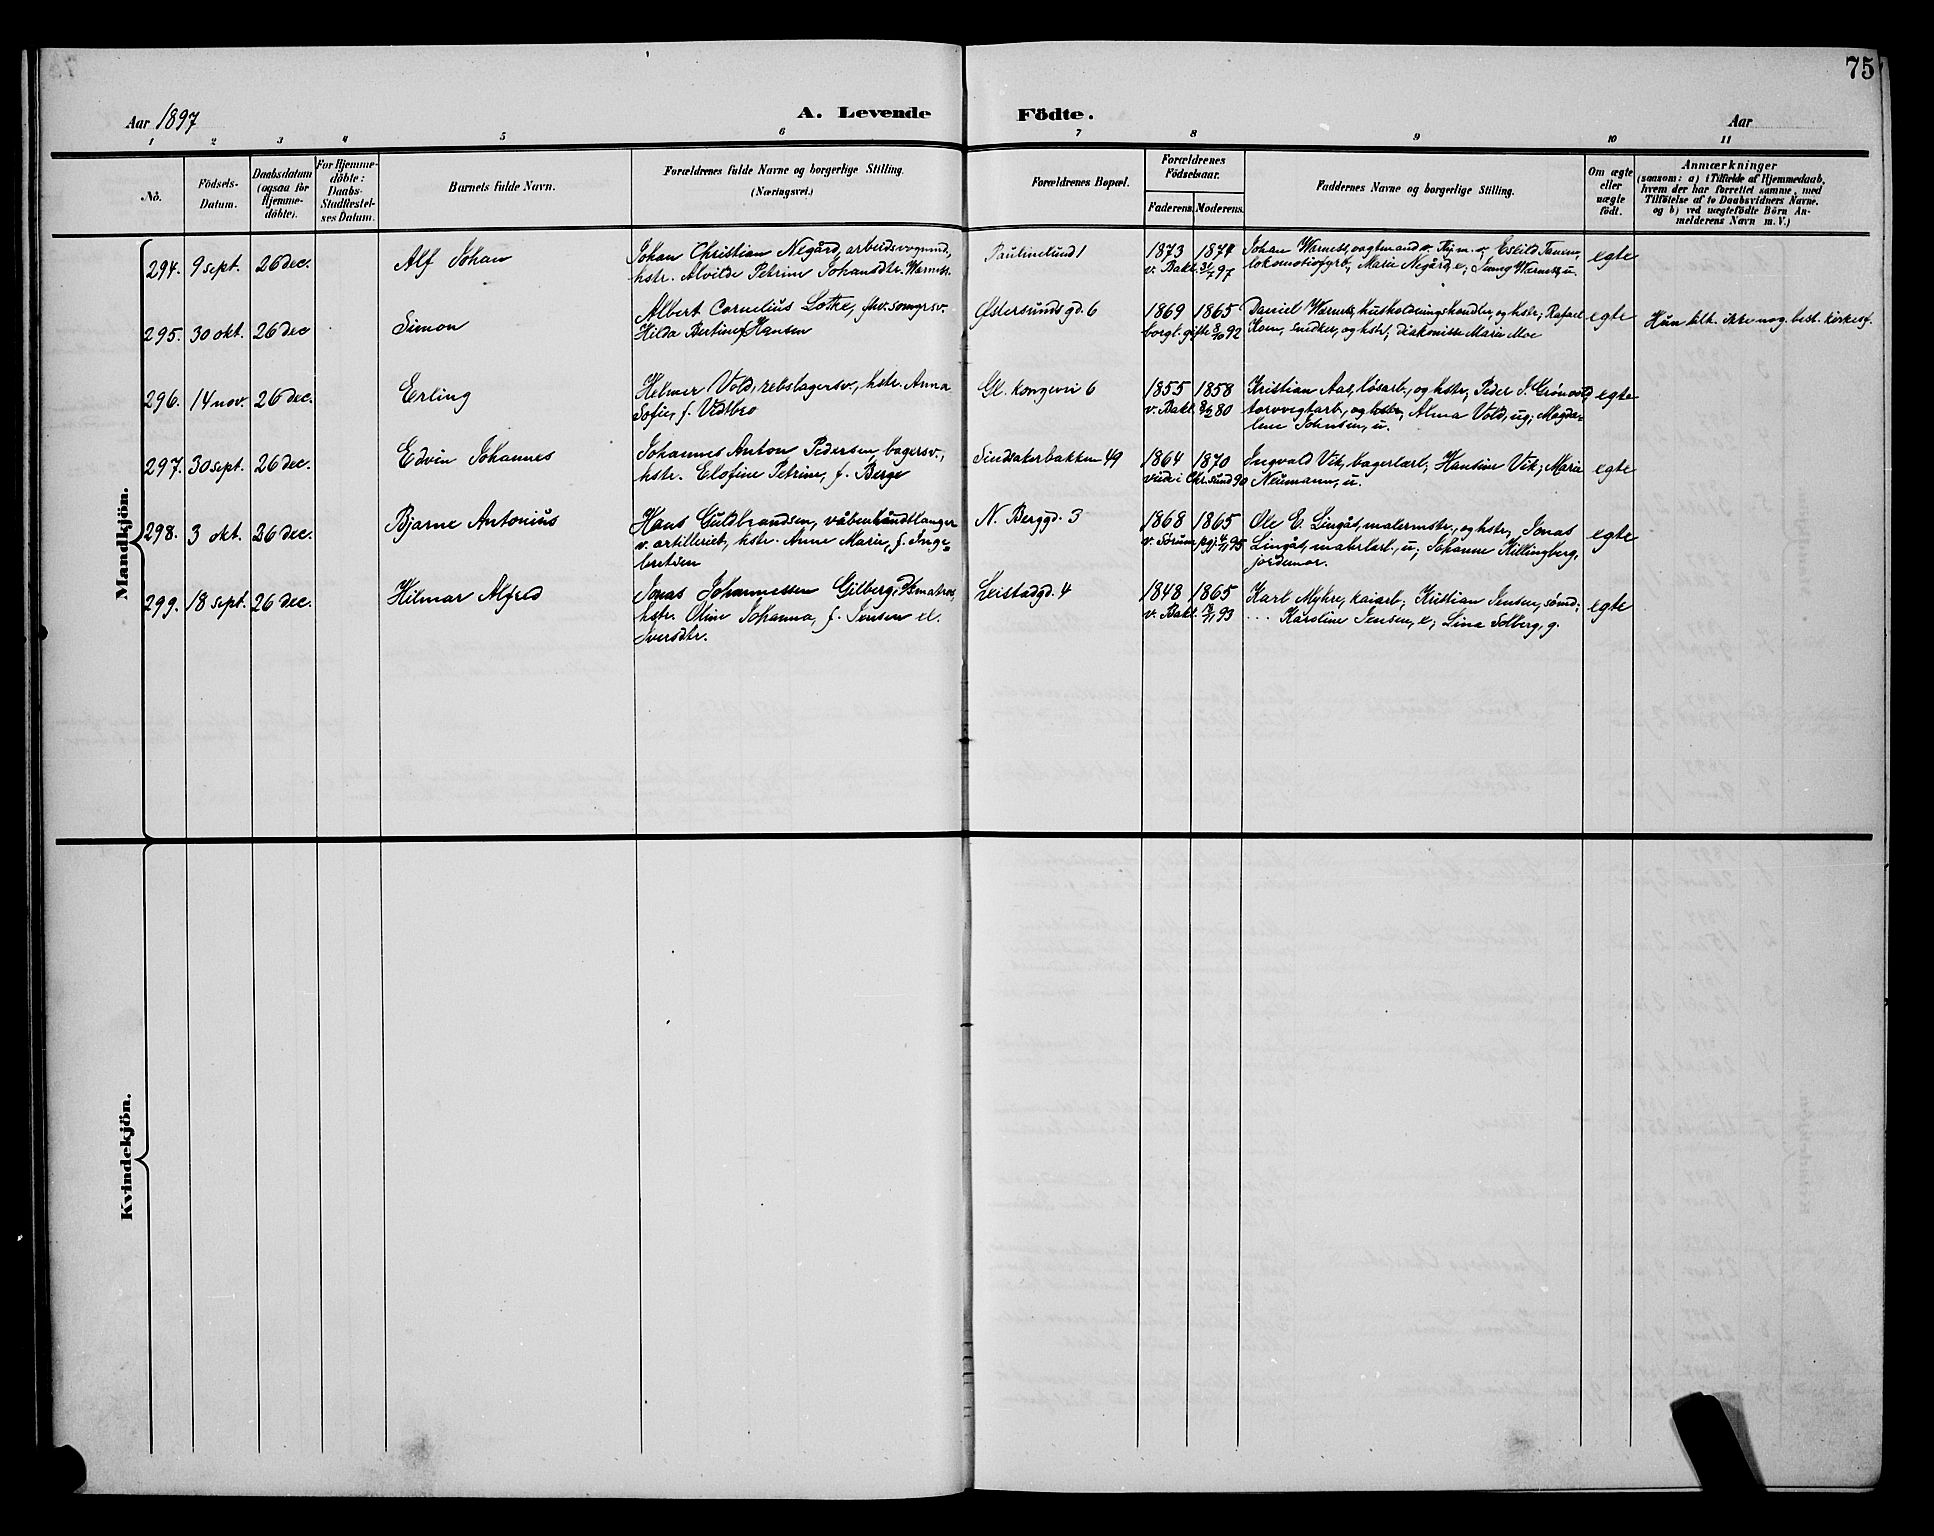 75
Aar 1897
A. Levende Födte.
Aar
1 2 3 4 5 6 7 8 9 10 11
No.
Födsels-
Datum.
Daabsdatum
(ogsaa for
Hjemme-
döbte).
For Hjemme-
döbte:
Daabs-
Stadfæstel-
ses Datum.
Barnets fulde Navn.
Forældrenes fulde Navne og borgerlige Stilling.
(Næringsvei.)
Forældrenes Bopæl.
Forældrenes
Födselsaar.
Faderens. Moderens.
Faddernes Navne og borgerlige Stilling.
Om ægte
eller
uægte
födt.
Anmærkninger
(saasom: a) i Tilfælde af Hjemmedaab,
hvem der har forrettet samme, med
Tilföielse af to Daabsvidners Navne,
og b) ved uægtefödte Börn An-
melderens Navn m. V.)
Mandkjön.
294. 9 sept. 26 dec. Alf Johan
Johan Christian Negård, arbeidsvognmd,
hstr. Alvilde Petrine Johansdtr. Warnes.
Paulinelund 1
1873 1874
v. Bakl. 31/7 97
Johan Warnes, vagtmand v. Eskild
lokomotivfyrb, Marie Negård, e; Warnes, u.
egte
295. 30 okt. 26 dec Simon
Albert Cornelius Lotke, fhv.
Hilda Bertine f Hansen
Østersundsgd. 6
1869 1865
borgl. gifte 8/10 92
Daniel Warnes, husholdningshandler, og hstr; Rafael
snedker, og hstr, diakonisse Marie Moe
egte
Hun tilh. ikke nog. best. kirkesf.
296. 14 nov. 26 dec. Erling
Helmer Vold, rebslagersv., hstr. Anna
Sofie, f. Vedtbro
Gl. kongevei 6
1855 1858
v. Bakl. 80
Kristian Aas, løsarb., og hstr; Peder S. Grønvold,
torvvegtarb., og hstr; Alma Vold, ug; Magda-
lene Johnsen, u.
egte
297. 30 sept. 26 dec. Edvin Johannes
Johannes Anton Pedersen, bagersv.,
hstr. Elofine Petrine, f. Berge
Sindsakerbakken 49
1864 1870
viede i Chr.sund 90
Ingvald Vik, bagerlærl; Hansine Vik; Marie
Neumann, u.
egte
298. 3 okt. 26 dec. Bjarne Antonius
Hans Guldbrandsen, våbenhåndlanger
v. artilleriet, hstr. Anne Marie, f. Inge-
bretsen
N. Berggd. 3
1868 1865
v. Sørum pgj. 4/11 95
Ole E. Lingås, malermstr., og hstr, Jonas
Lingås, malerlærl., u; Johanne Killingberg,
jordemor.
egte
299. 18 sept. 26 dec. Hilmar Alfred
Jonas Johannessen Gilberg,
hstr. Oline Johanna, f. Jensen el.
Iversdtr.
Leistadgd. 4
1848 1865
v. Bakl. 93
Karl Myhre, kaiarb; Kristian Jensen, sømd;
... Karoline Jensen, e; Lina Solberg, g.
egte
Kvindekjön.